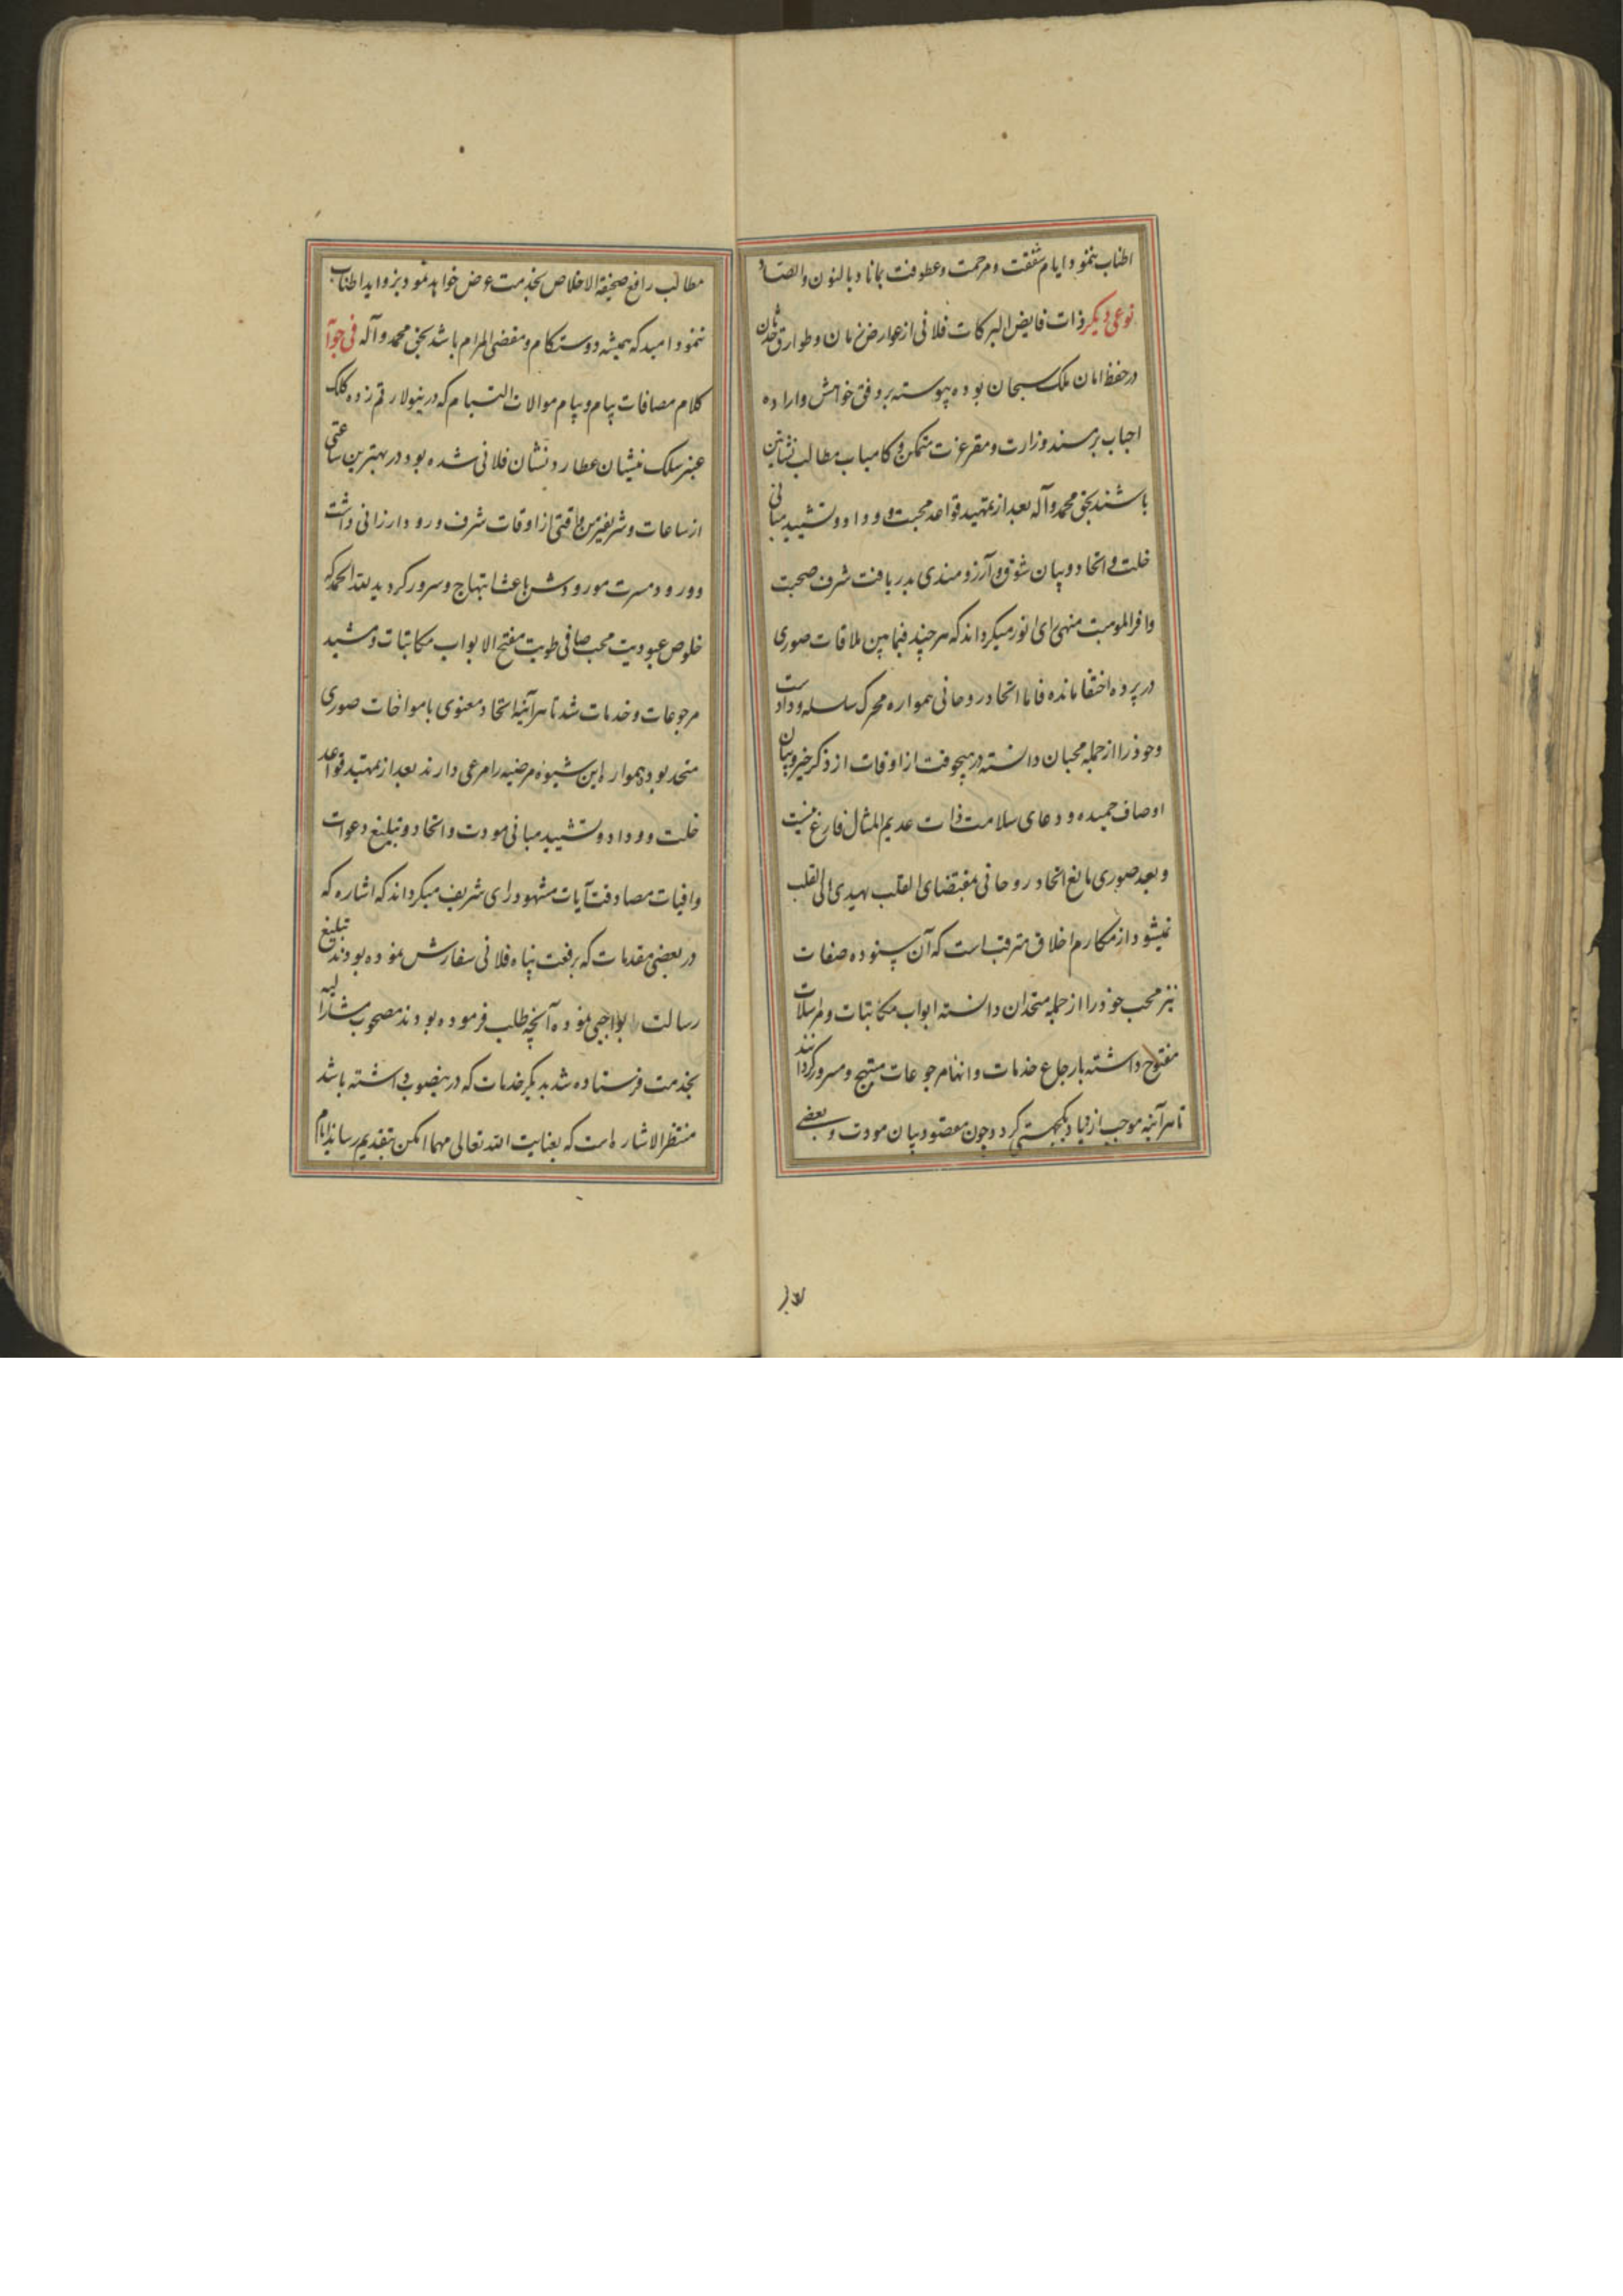 اطناب ننمود ایام شفقت و مرحمت و عطوفت بماناد بالنون والصاد
نوعی دیکر ذات فایض البرکات فلانی از عوارض زمان و طوارق حدثان
در حفظ امان ملک سبحان بوده پیوسته بر وفق خواهش و اراده
احباب بر مسند وزارت و مقر عزت متمکن و کامیاب مطالب نشاتین
باشند بحق محمد وآله بعد از تمهید قواعد محبت و وداد و تشیید مبانی
خلت و اتحاد و بیان شوق و آرزومندی بدریافت شرف صحبت
وافر الموهبت منهی رای انور میکرداند که هرچند فیمابین ملاقات صوری
در پرده اختفا مانده فاما اتحاد روحانی همواره محرک سلسله ودادست
وخود را از جمله محبان دانسته در هیچوقت از اوقات از ذکر خیر و بیان
اوصاف حمیده و دعای سلامت ذات عدیم المثال فارغ نیست
و بعد صوری مانع اتحاد روحانی مقتضای القلب یهدی الی القلب
نمیشود از مکارم اخلاق مترقب است که آن ستوده صفات
نیز محب خود را از جمله متحدان دانسته ابواب مکاتبات و مراسلات
مفتوح داشته بارجاع خدمات و انهام مرجوعات مبتهج و مسرور کردانند
تا هرآینه موجب ازدیاد یکجهتی کردد و چون مقصود بیان مودت و بعضی
مطالب رافع صحیفة الاخلاص بخدمت عرض خواهد نمود بزواید اطناب
ننمود امید که همیشه دوستکام و مقضی المرام باشد بحق محمد و آله فی جوآ
کلام مصافات پیام و پیام موالات التیام که درینولا رقم زده کلک
عنبر سلک منشیان عطارد نشان فلانی شده بود در بهترین ساعتی
از ساعات و شریفترین وقتی از اوقات شرف ورود ارزانی داشت
و ورود مسرت مورودش باعث ابتهاج و سرور کردید لله الحمد که
خلوص عبودیت محب صافی طویت مفتح الابواب مکاتبات و مشید
مرجوعات و خدمات شد تا هرآینه اتحاد معنوی با مواخات صوری
متحد بود همواره این شیوه مرضیه را مرعی دارند بعد از تمهید قواعد
خلت و وداد و تشیید مبانی مودت و اتحاد و تبلیغ دعوات
وافیات مصادقت آیات مشهود رای شریف میکرداند که اشاره که
در بعضی مقدمات که برفعت پناه فلانی سفارش نموده بودند تبلیغ
رسالت بواجبی نموده آنچه طلب فرموده بودند مصحوب مشارالیه
بخدمت فرستاده شد بدیکر خدمات که درینصوب داشته باشد
منتظر الاشاره است که بعنایت الله تعالی مهما امکن بتقدیم رساند ایام